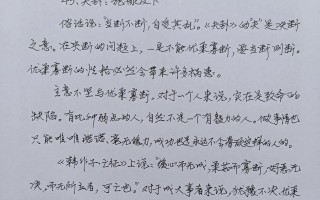 俗话说："当断不断，自受其乱"。《夬卦》的"夬"是决断
之意。在决断的问题上，一是不能优柔寡断，要当断则断。
优柔寡断的性格必然会带来许多祸患。
主意不坚与优柔寡断，对于一个人来说，实在是致命的
缺陷。有此种弱点的人，自然不是一个有毅力的人。做事情也
只能唯唯诺诺、毫无魄力，成功也是永远不会青睐这样的人的。
《韩外不·之征》上说："优心而无成，柔若而寡断，好恶无
决，而无所立者，可亡也"。对于成大事者来说，犹豫不决、优柔